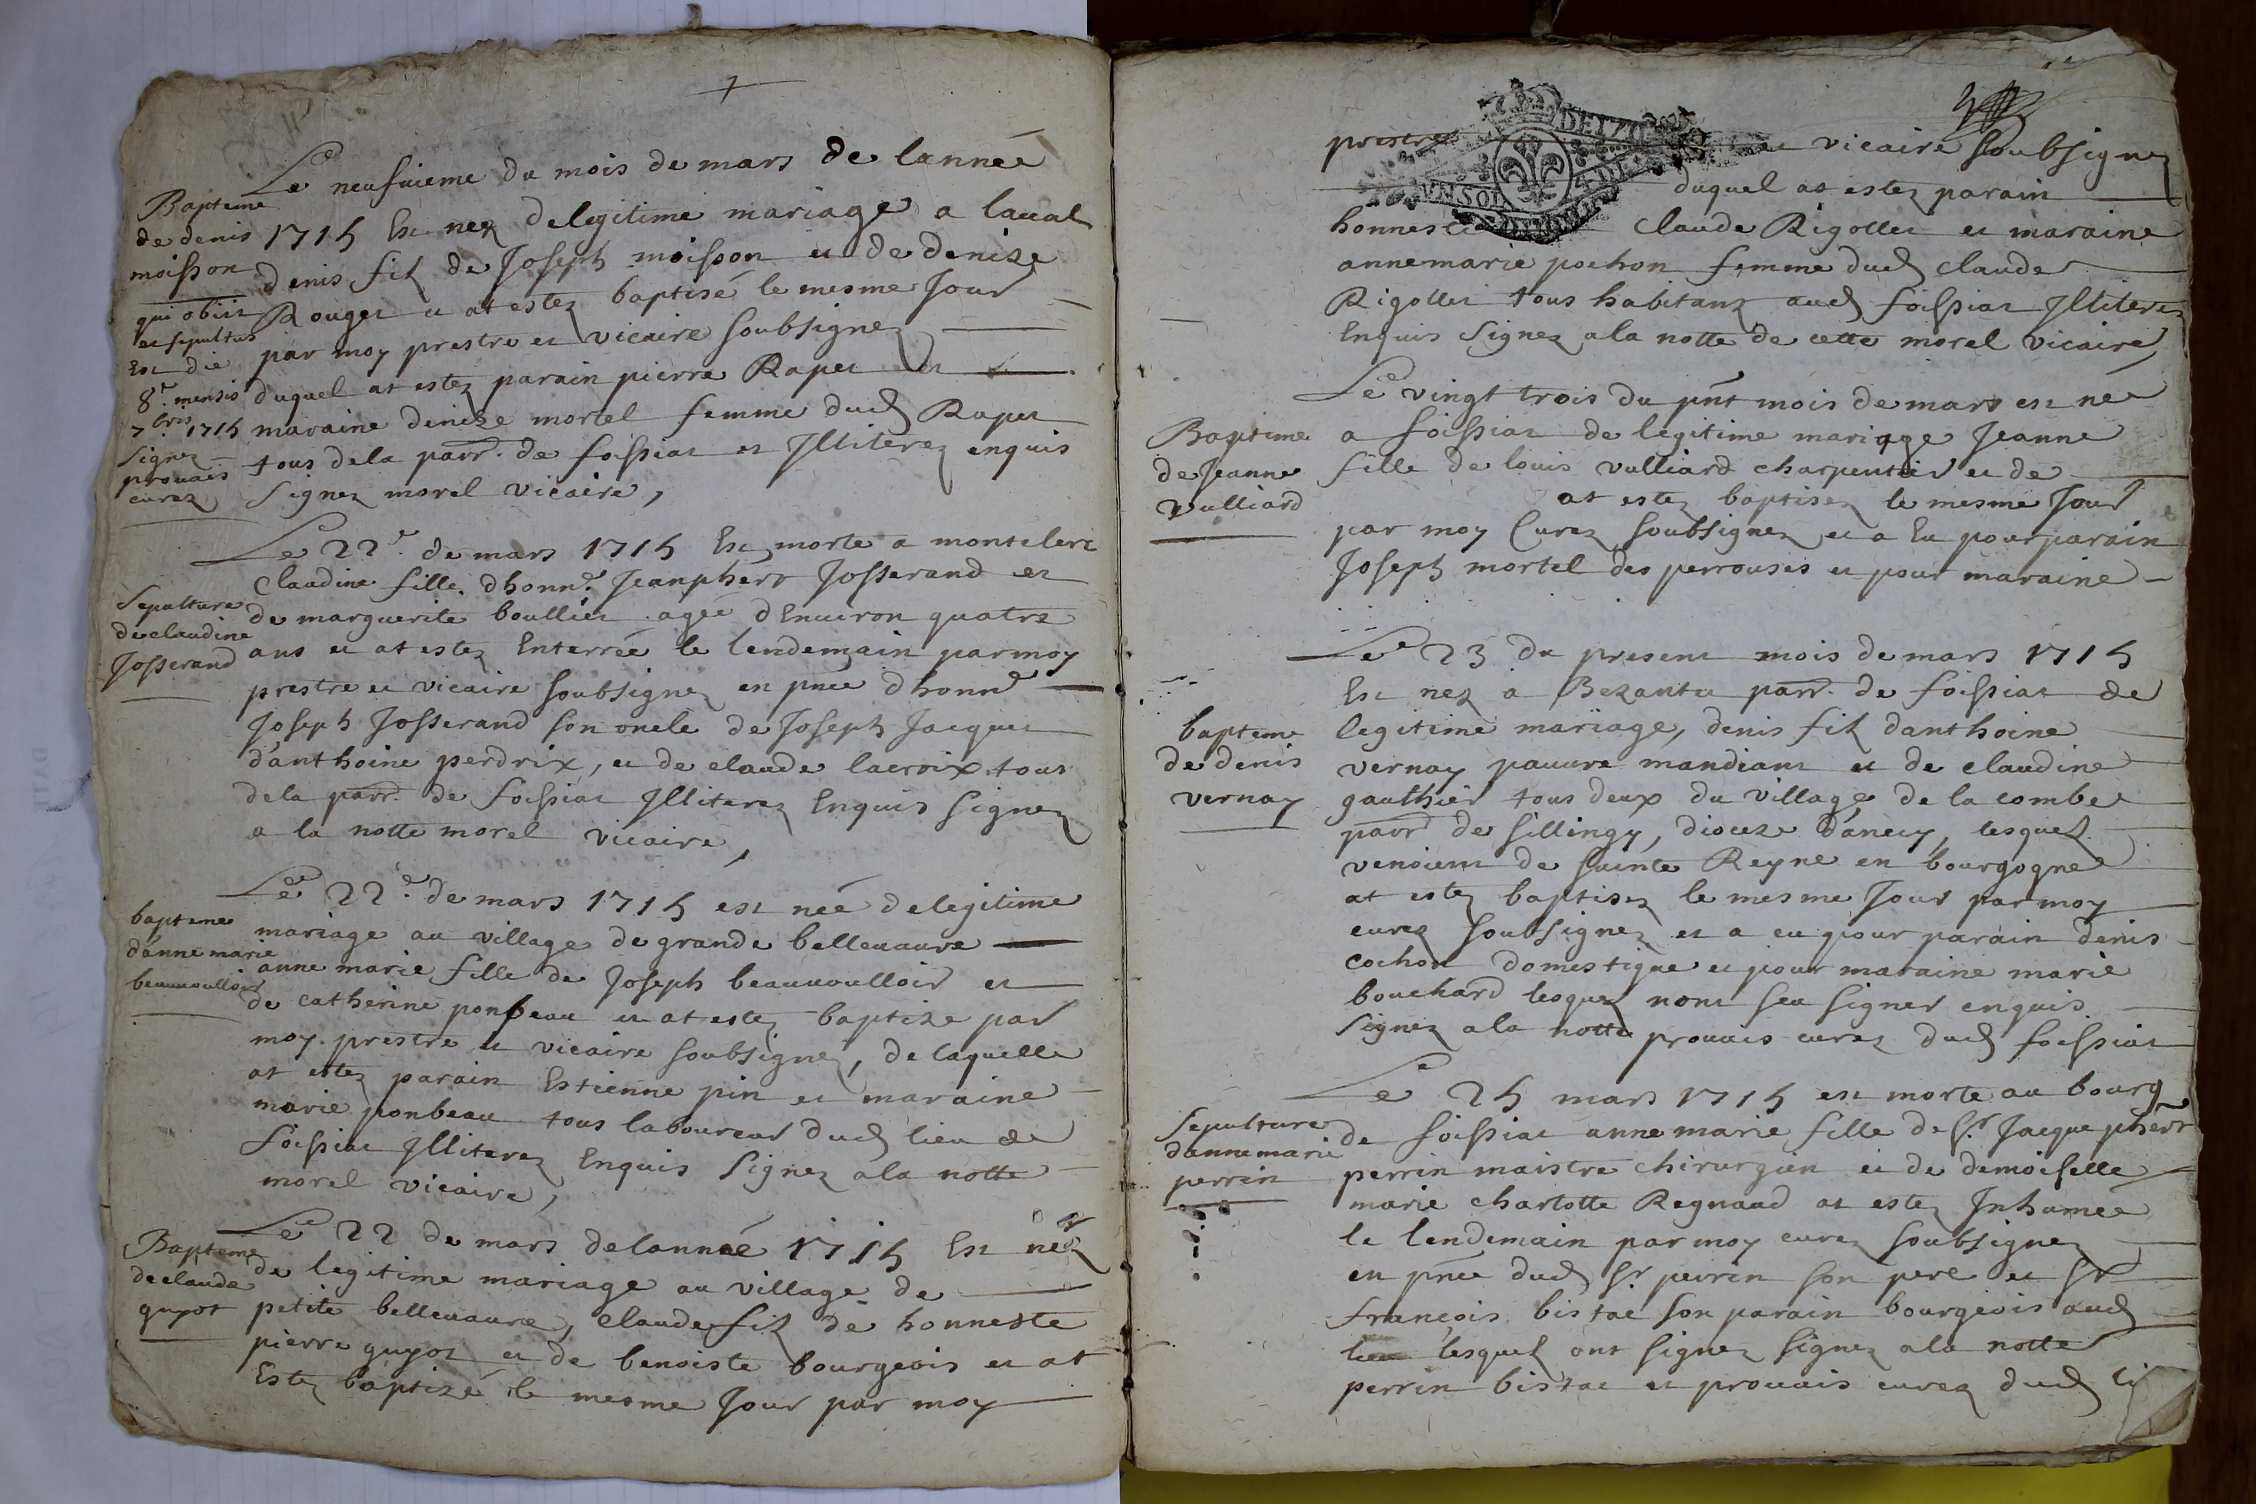 Le neufuieme du mois de mars de lanneé
Bapteme
de denis
moisson
qui obiit
et sepultus
Est die
8.e mensis
7bris 1715
signez
prouais
curez
1715 Est nez delegitime mariage a laual
denis fils de Joseph moisson et de denize
Rouget et at estez baptisé le mesme Jour
par moy prestre et vicaire soubsignez
duquel at estez parain pierre Rapet et
maraine denize mortel femme dud Rapet
tous dela parr. de foissiat et Illiterez enquis
signez morel vicaire,
Le 22e. de mars 1715 Est morte a montclerc
Sepulture
de claudine
Josserand
Claudine fille dhonn.e Jeanphert Josserand et
de marguerite boullier agée dEnuiron quatre
ans et at estez Enterreé le lendemain parmoy
prestre et vicaire soubsignez en pnce dhonn.e
Joseph Josserand son oncle de Joseph Jacquet
d'anthoine perdrix, et de claude lacroix tous
dela parr. de foissiat Illiterez Enquis signez
a la notte morel vicaire,
Le 22e. de mars 1715 est neé delegitime
bapteme
d'anne marie
beauuoulloir
mariage au village de grande belleuaure
anne marie fille de Joseph beauuoulloir et
de catherine ponbeau et at estez baptize par
moy prestre et vicaire soubsignez, de laquelle
at estez parain Estienne pin et maraine
marie ponbeau tous laboureur dud lieu de
foissiat Illiterez Enquis signez ala notte
morel vicaire,
Le 22 de mars delanneé 1715 Est nez
Bapteme
declaude
guyot
de legitime mariage au village de
petite belleuaure, claude fils de honneste
pierre guyot et de benoiste bourgeois et at
Estez baptizé le mesme Jour par moy
prestre et vicaire soubsignez
duquel at estez parain
honneste claude Rigollet et maraine
annemarie pochon femme dud claude
Rigollet tous habitans aud foissiat Illiterez
Enquis signez ala notte de cette morel vicaire,
Le vingt trois du pnt mois de mars est neé
Bapteme
de Jeanne
Vulliard
a foissiat de legitime mariage Jeanne
fille de louis vulliard charpentier et de
at estez baptisez le mesme Jour
par moy Curez soubsignez et a Eu pour parain
Joseph mortel des perrouses et pour maraine
Le 23 du present mois de mars 1715
bapteme
de denis
vernay
Est nez a Bezantu parr. de foissiat de
legitime mariage, denis fils danthoine
vernay pauure mandiant et de claudine
gauthier tous deux du village de la combe
parr de sillingy, dioceze d'anecy, lesquels
venoient de sainte Reyne en bourgogne
at estez baptisez le mesme Jour par moy
curez soubsignez et a eu pour parain denis
cochon domestique et pour maraine marie
bouchard lesquels nont seu signer enquis
signez ala notte prouais curez dud foissiat
Le 25 mars 1715 est morte au bourg
Sepulture
dannemarie
perrin
de foissiat anne marie fille de sr. Jacque phert
perrin maistre chirurgien et de demoiselle
marie charlotte Regnaud at estez Inhumeé
le lendemain parmoy curez soubsignez
en pnce dud sr perrin son pere et sr
françois bistac son parain bourgeois aud
lieu lesquels ont signez signez ala notte
perrin bistac et prouais curez dud